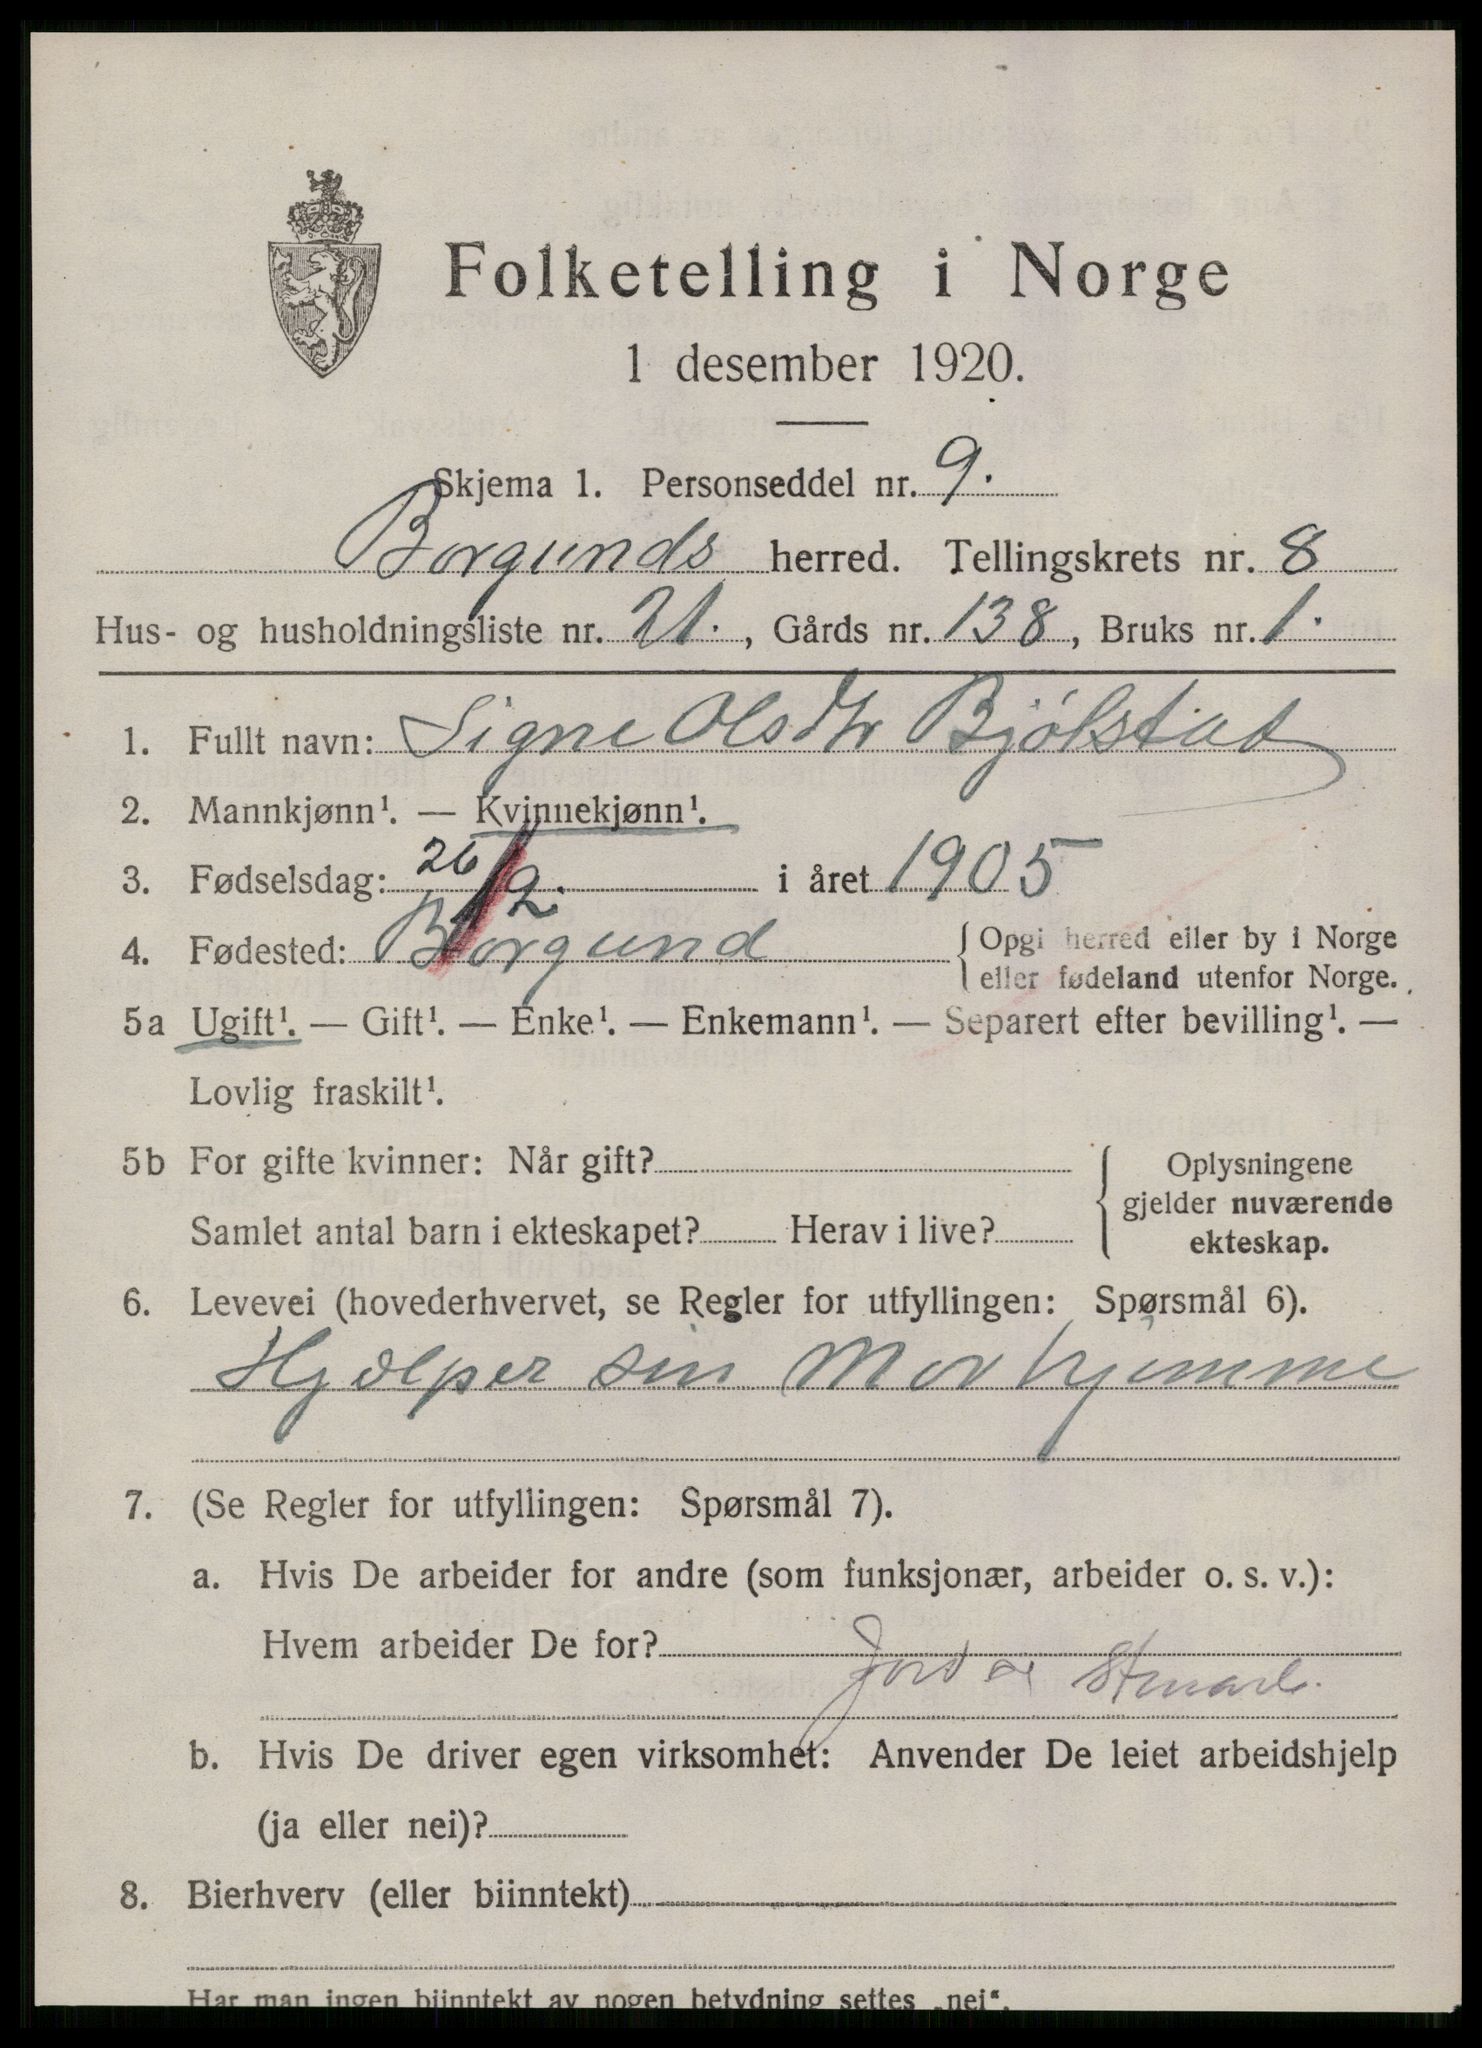 Folketelling i Norge
1 desember 1920.
Skjema 1. Personseddel nr. 9.
Borgunds herred. Tellingskrets nr. 8
Hus- og husholdningsliste nr. 21., Gårds nr. 138, Bruks nr. 1.
1. Fullt navn: Signe Olsdtr Bjølstad
2. Mannkjønn¹. — Kvinnekjønn¹.
3. Fødselsdag: 26/2. i året 1905
4. Fødested: Borgund {Opgi herred eller by i Norge
eller fødeland utenfor Norge.
5a Ugift¹. — Gift¹. — Enke¹. — Enkemann¹. — Separert efter bevilling¹. —
Lovlig fraskilt¹.
5b For gifte kvinner: Når gift?
Samlet antal barn i ekteskapet? Herav i live?
{Oplysningene
gjelder nuværende
ekteskap.
6. Levevei (hovederhvervet, se Regler for utfyllingen: Spørsmål 6).
Hjælper sin Mor hjemme
7. (Se Regler for utfyllingen: Spørsmål 7).
a. Hvis De arbeider for andre (som funksjonær, arbeider o. s. v.):
Hvem arbeider De for?
b. Hvis De driver egen virksomhet: Anvender De leiet arbeidshjelp
(ja eller nei)?
8. Bierhverv (eller biinntekt)
Har man ingen biinntekt av nogen betydning settes „nei“.